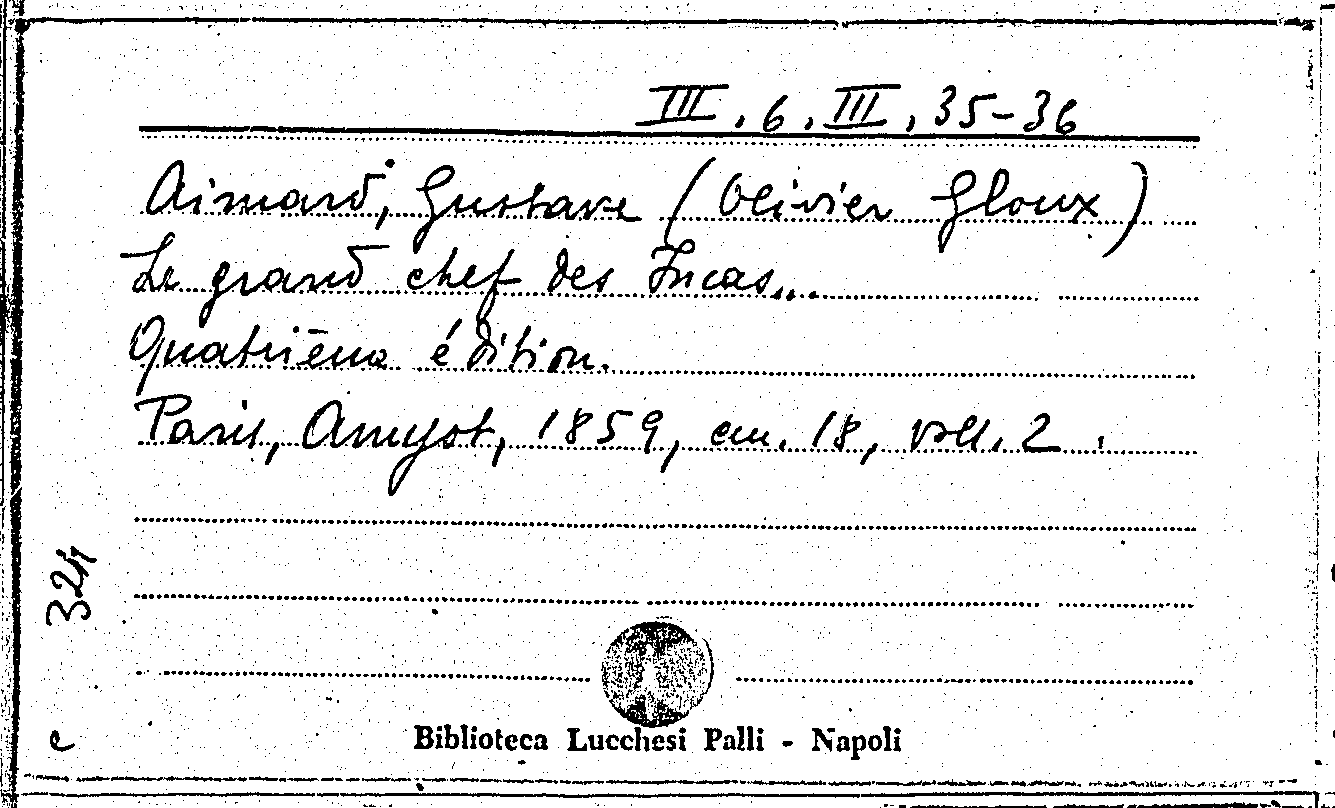 III. 6. III, 35-36
Aimard, Gustave (Olivier Gloux)
Le grand chef des Incas...
Quatrième édition.
Paris, Amyot, 1859, cm. 18, voll. 2.
324
c
Biblioteca Lucchesi Palli - Napoli